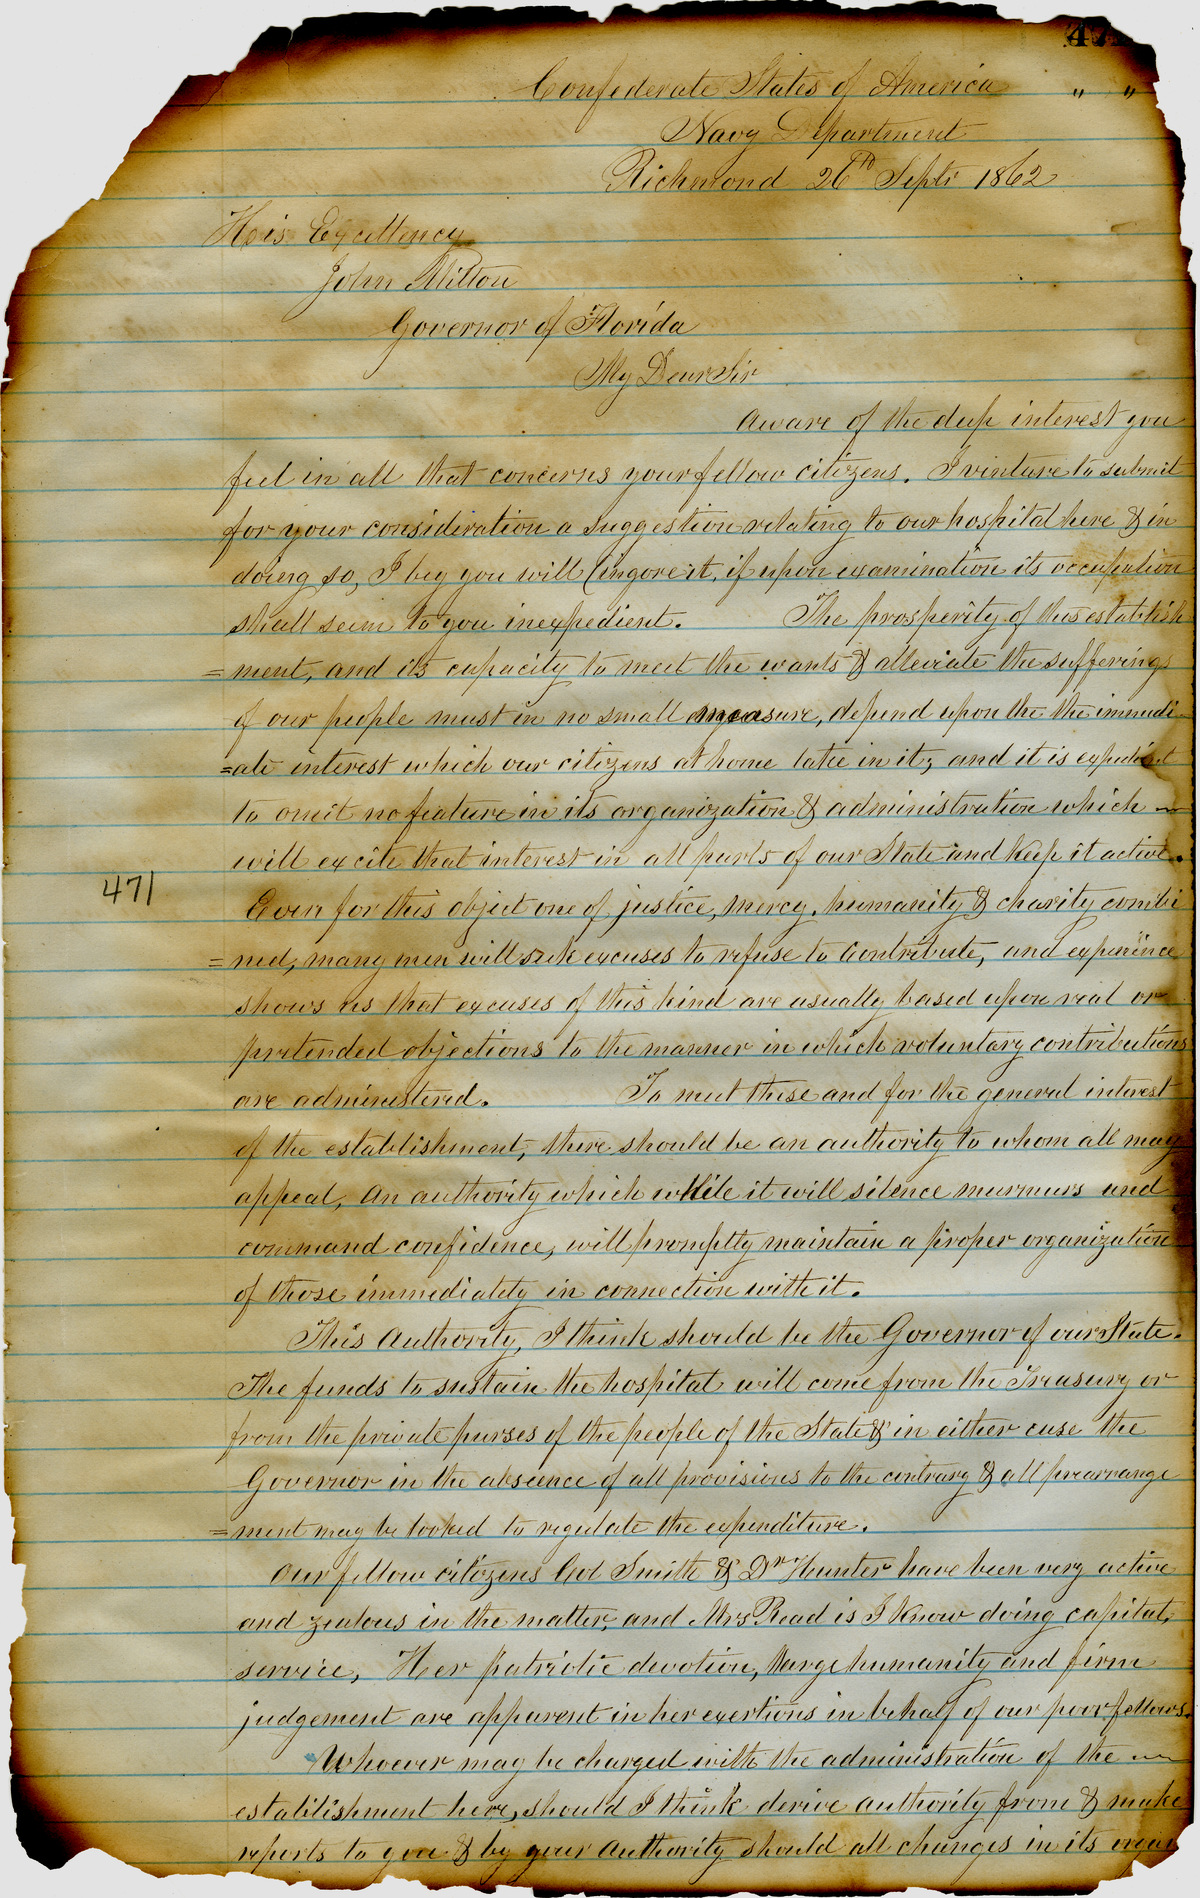 47
Confederate States of America " "
Navy Department
Richmond 26th Sept: 1862
His Excellency
John Milton
Governor of Florida
My Dear Sir
Aware of the deep interest you
feel in all that concerns your fellow citizens. I venture to submit
for your consideration a suggestion relating to our hospital here & in
doing so, I beg you will (ingore it, if upon examination its occupation
shall seem to you inexpedient. The prosperity of this establish
=ment, and its capacity to meet the wants & alleviate the sufferings
of our people must in no small measure, depend upon the the immedi
=ate interest which our citizens at home take in it; and it is expedient
to omit no feature in its organization & administration which
will excite that interest in all parts of our State and keep it active.
471
Even for this object one of justice, mercy, humanity & charity combi
=ned, many men will seek excuses to refuse to contribute, and experience
shows us that excuses of this kind are usually based upon real or
pretended objections to the manner in which voluntary contributions
are administered. To meet these and for the general interest
of the establishment, there should be an authority to whom all may
appeal, An authority which while it will silence murmurs and
command confidence, will promptly maintain a proper organization
of those immediately in connection with it.
This Authority, I think should be the Governor of our State.
The funds to sustain the hospital will come from the Treasury or
from the private purses of the people of the State & in either case the
Governor in the abscence of all provisions to the contrary & all prearrange
=ment may be looked to regulate the expenditure.
Our fellow citizens Col Smith & Dr Hunter have been very active
and zealous in the matter, and Mrs Read is I Know doing capital,
service, Her patriotic devotion, large humanity and firm
judgement are apparent in her exertions in behalf of our poor fellows.
Whoever may be charged with the administration of the
establishment here, should I think derive authority from & make
reports to you & by your Authority should all changes in its organ